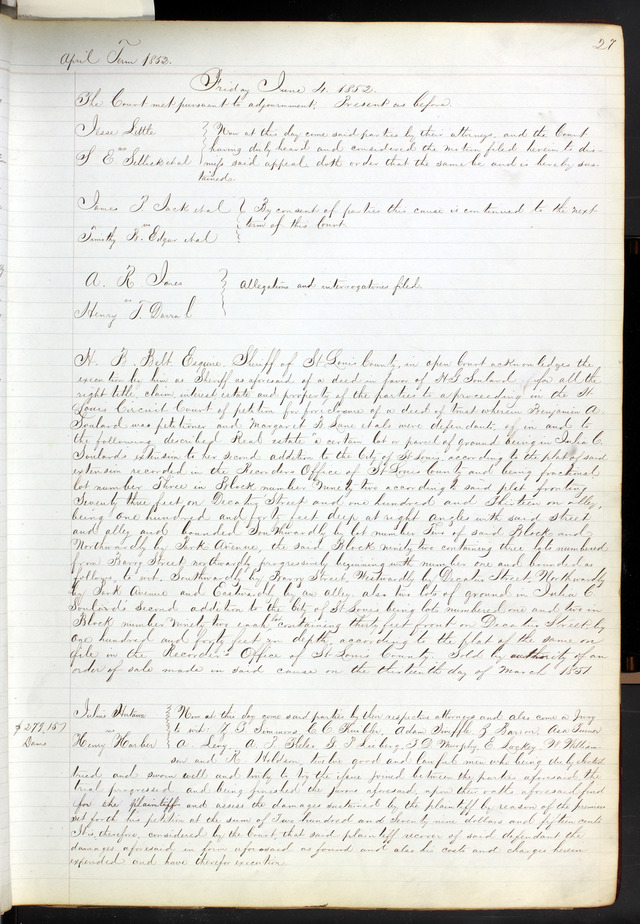 27
April Term 1852.
Friday June 4. 1852.
The Court met pursuant to adjournment. Present as before
Jesse Little
vs
S E Sellick et al
Now at this day come said parties by their attorneys, and the Court
having duly heard and considered the motion filed herein to dis-
miss said appeal doth order that the same be and is hereby sus-
tained.
James T. Jack et al
vs
Timothy B. Edgar et al
By consent of parties this cause is continued to the next
term of this Court
A. R. Jones
vs
Henry T. Darrah
Allegations and interrogatories filed.
H. B. Belt Esquire. Sheriff of St Louis County, in open Court acknowledges the
execution by him as Sheriff as aforesaid of a deed in favor of H G Soulard for all the
right title, claim interest estate and property of the parties to a proceeding in the St
Louis Circuit Court of petition for foreclosure of a deed of trust wherein Benjamin A.
Soulard was petitioner and Margaret F. Lane et als were defendants, of in and to
the following described Real estate a certain lot or parcel of ground being in Julia C.
Soulards extension to her second addition to the City of St Louis according to the plat of said
extension recorded in the Recorders Office of St Louis County and being fractional
lot number Three in Block number Ninety two according to said plat fronting
Seventy three feet on Decatur Street and one hundred and thirteen on alley,
being one hundred and forty feet deep at right angles with said Street
and alley and bounded Southwardly by lot number Two of said Block and
Northwardly by Park Avenue, the said Block ninety two containing three lots numbered
from Barry Street northwardly progressively beginning with number one and bounded as
follows to wit. Southwardly by Barry Street, Westwardly by Decatur Street, Northwardly
by Park Avenue and Eastwardly by an alley. also two lots of ground in Julia C.
Soulard's Second addition to the City of St Louis being lots numbered one and two in
Block number Ninety two each lot containing thirty feet front on Decatur Street by
one hundred and forty feet in depth, according to the plat of the same on
file in the Recorder's Office of St Louis County. Sold by authority of an
order of sale made in said cause on the thirteenth day of March 1851
$279,15
Dams
Julius
vs
Henry Harker
Now at this day come said parties by their respective attorneys and also come a Jury
to wit. Simmons C C Adam Z Barron, Asa
A. Levy A. T. D Murphy, E W William
son and R. Holdson, twelve good and lawful men who being duly elected
tried and sworn well and truly to try the issue joined between the parties aforesaid, the
trial progressed and being finished the jurors aforesaid, upon their oaths aforesaid find
for the plaintiff and assess the damages sustained by the plaintiff by reason of the premises
set forth his petition at the sum of Two hundred and Seventy nine dollars and fifteen cents
It is, therefore, considered by the Court, that said plaintiff recover of said defendant the
damages aforesaid in form aforesaid as found and also his costs and charges herein
expended and have therefor execution.